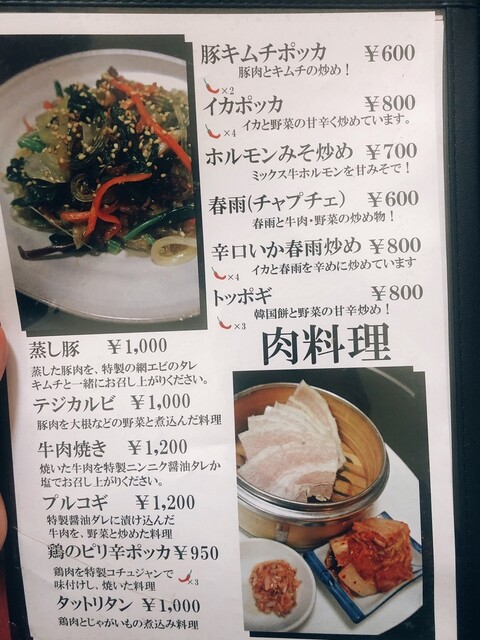 豚キムチポッカ ￥600
豚肉とキムチの炒め！
×2
イカポッカ ￥800
×4 イカと野菜の甘辛く炒めています。
ホルモンみそ炒め ￥700
ミックス牛ホルモンを甘みそで！
春雨(チャプチェ) ￥600
春雨と牛肉・野菜の炒め物！
辛口いか春雨炒め ￥800
×4 イカと春雨を辛めに炒めています
トッポギ ￥800
×3 韓国餅と野菜の甘辛炒め！
肉料理
蒸し豚 ￥1,000
蒸した豚肉を、特製の網エビのタレ
キムチと一緒にお召し上がりください。
テジカルビ ￥1,000
豚肉を大根などの野菜と煮込んだ料理
牛肉焼き ￥1,200
焼いた牛肉を特製ニンニク醤油タレか
塩でお召し上がりください。
プルコギ ￥1,200
特製醤油ダレに漬け込んだ
牛肉を、野菜と炒めた料理
鶏のピリ辛ポッカ ￥950
鶏肉を特製コチュジャンで
味付けし、焼いた料理 ×3
タットリタン ￥1,000
鶏肉とじゃがいもの煮込み料理